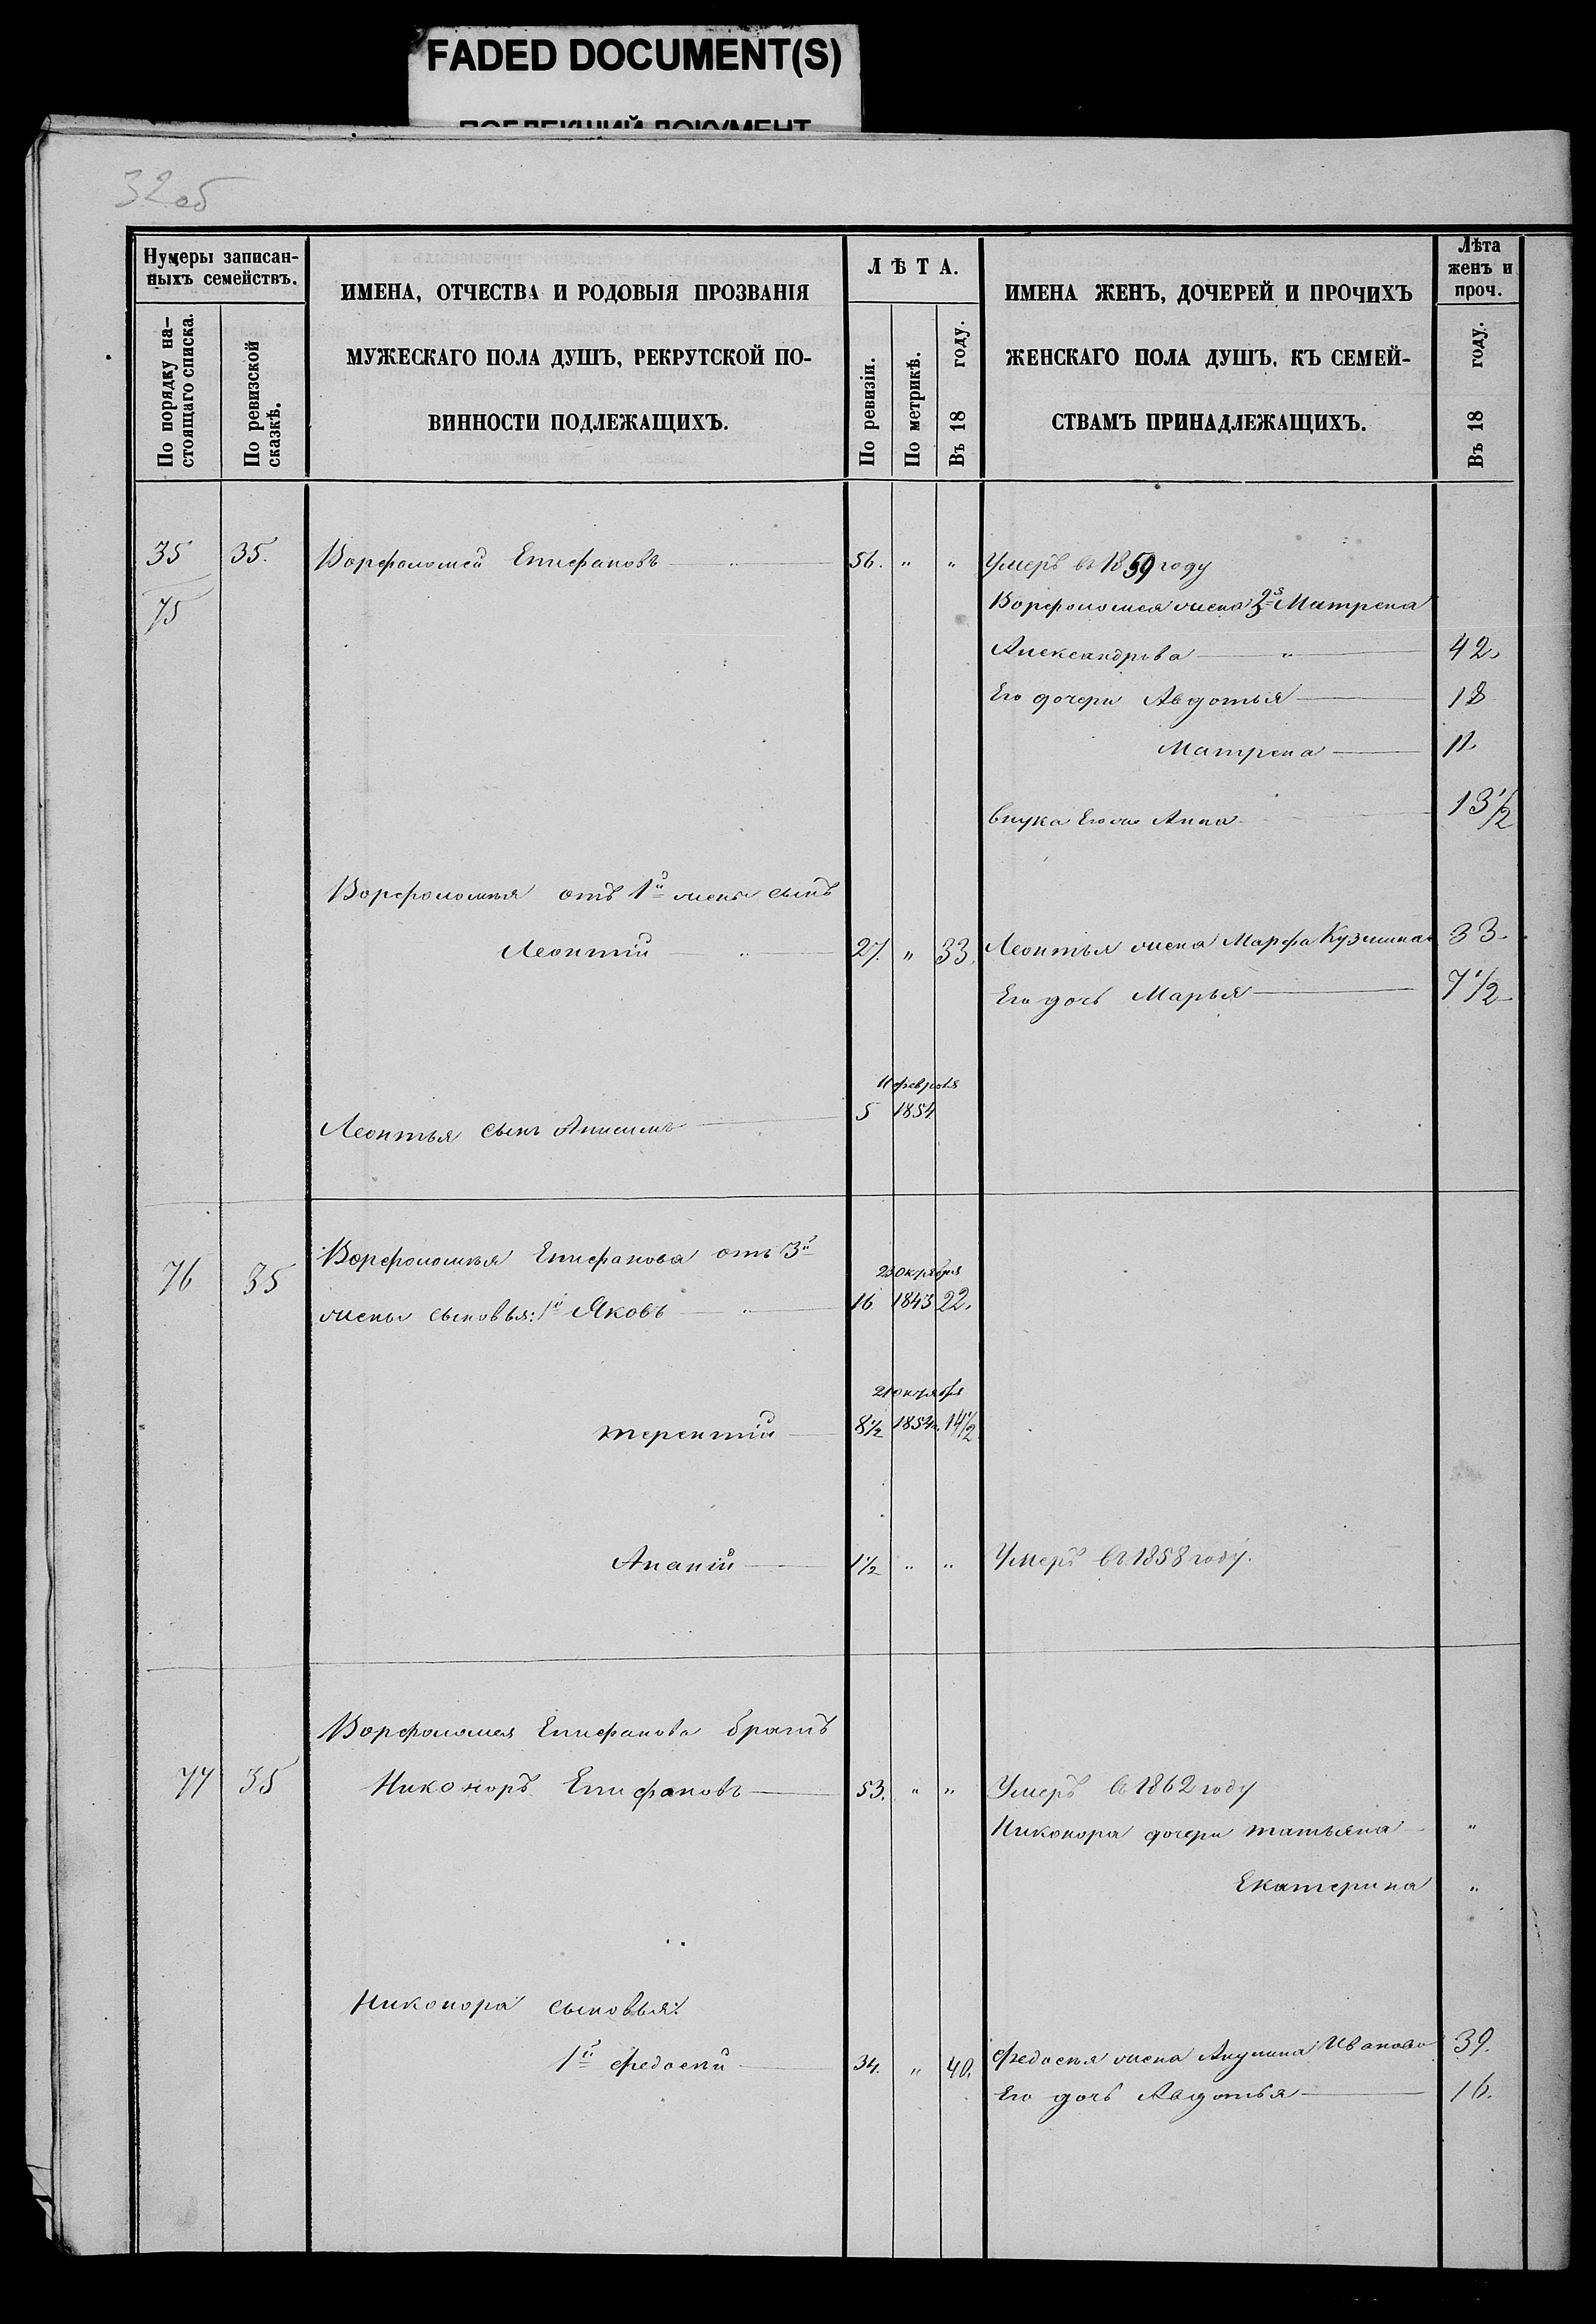 FADED DOCUMENT(S)
ПОБЛЕКШИЙ ДОКУМЕНТ
32об
Нумеры записан-
ныхъ семействъ.
По порядку на-
стоящаго списка.
По ревизской
сказкѣ.
ИМЕНА, ОТЧЕСТВА И РОДОВЫЯ ПРОЗВАНІЯ
МУЖЕСКАГО ПОЛА ДУШЪ, РЕКРУТСКОЙ ПО-
ВИННОСТИ ПОДЛЕЖАЩИХЪ.
ЛѢТА.
По ревизіи.
По метрикѣ.
Въ 18 году.
ИМЕНА ЖЕНЪ, ДОЧЕРЕЙ И ПРОЧИХЪ
ЖЕНСКАГО ПОЛА ДУШЪ, КЪ СЕМЕЙ-
СТВАМЪ ПРИНАДЛЕЖАЩИХЪ.
Лѣта
женъ и
проч.
Въ 18 году.
35 35. Ворфоломей Епифановъ — " — 56. " " Умеръ въ 1859 году
75 Ворфоломея жена Матрена
Александрова — " — 42.
Его дочери Авдотья — 18
Матрена — 11.
внука Его же Анна 13 1/2
Ворфоломѣя отъ 1й жены сынъ
Леонтій — " — 27. " 33. Леонтья жена Марфа Кузмина 33.
Его дочь Марья — 7 1/2
11 февраля
Леонтья сынъ Анисимъ — 5 1854
76 35 Ворфоломѣя Епифанова отъ 3й
23 октября
жены сыновья: 1й Яковъ — " — 16 1843 22.
21 октября
терентій — 8 1/2 1851 14 1/2
Ананій — 1 1/2 " " Умеръ въ 1858 году.
Ворфоломея Епифанова братъ
77 35 Никоноръ Епифановъ — 53. " " Умеръ въ 1862 году
Никонора дочери татьяна — "
Екатерина "
Никонора сыновья:
1й федосѣй — 34. " 40. федосѣя жена Акулина Иванова 39.
Его дочь Авдотья — 16.